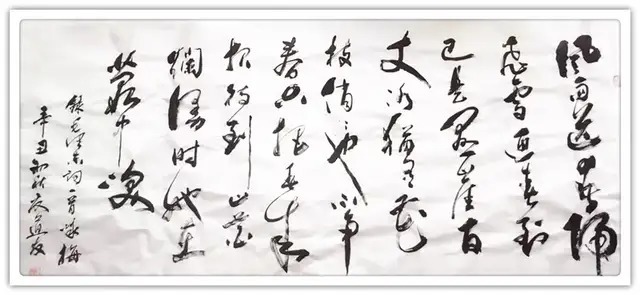 風雨送春歸
飛雪迎春到
已是悬崖百
丈冰猶有花
枝俏俏也不争
春只把春来
报待到山花
爛漫时她在
丛中笑
录毛泽东词一首咏梅
辛丑